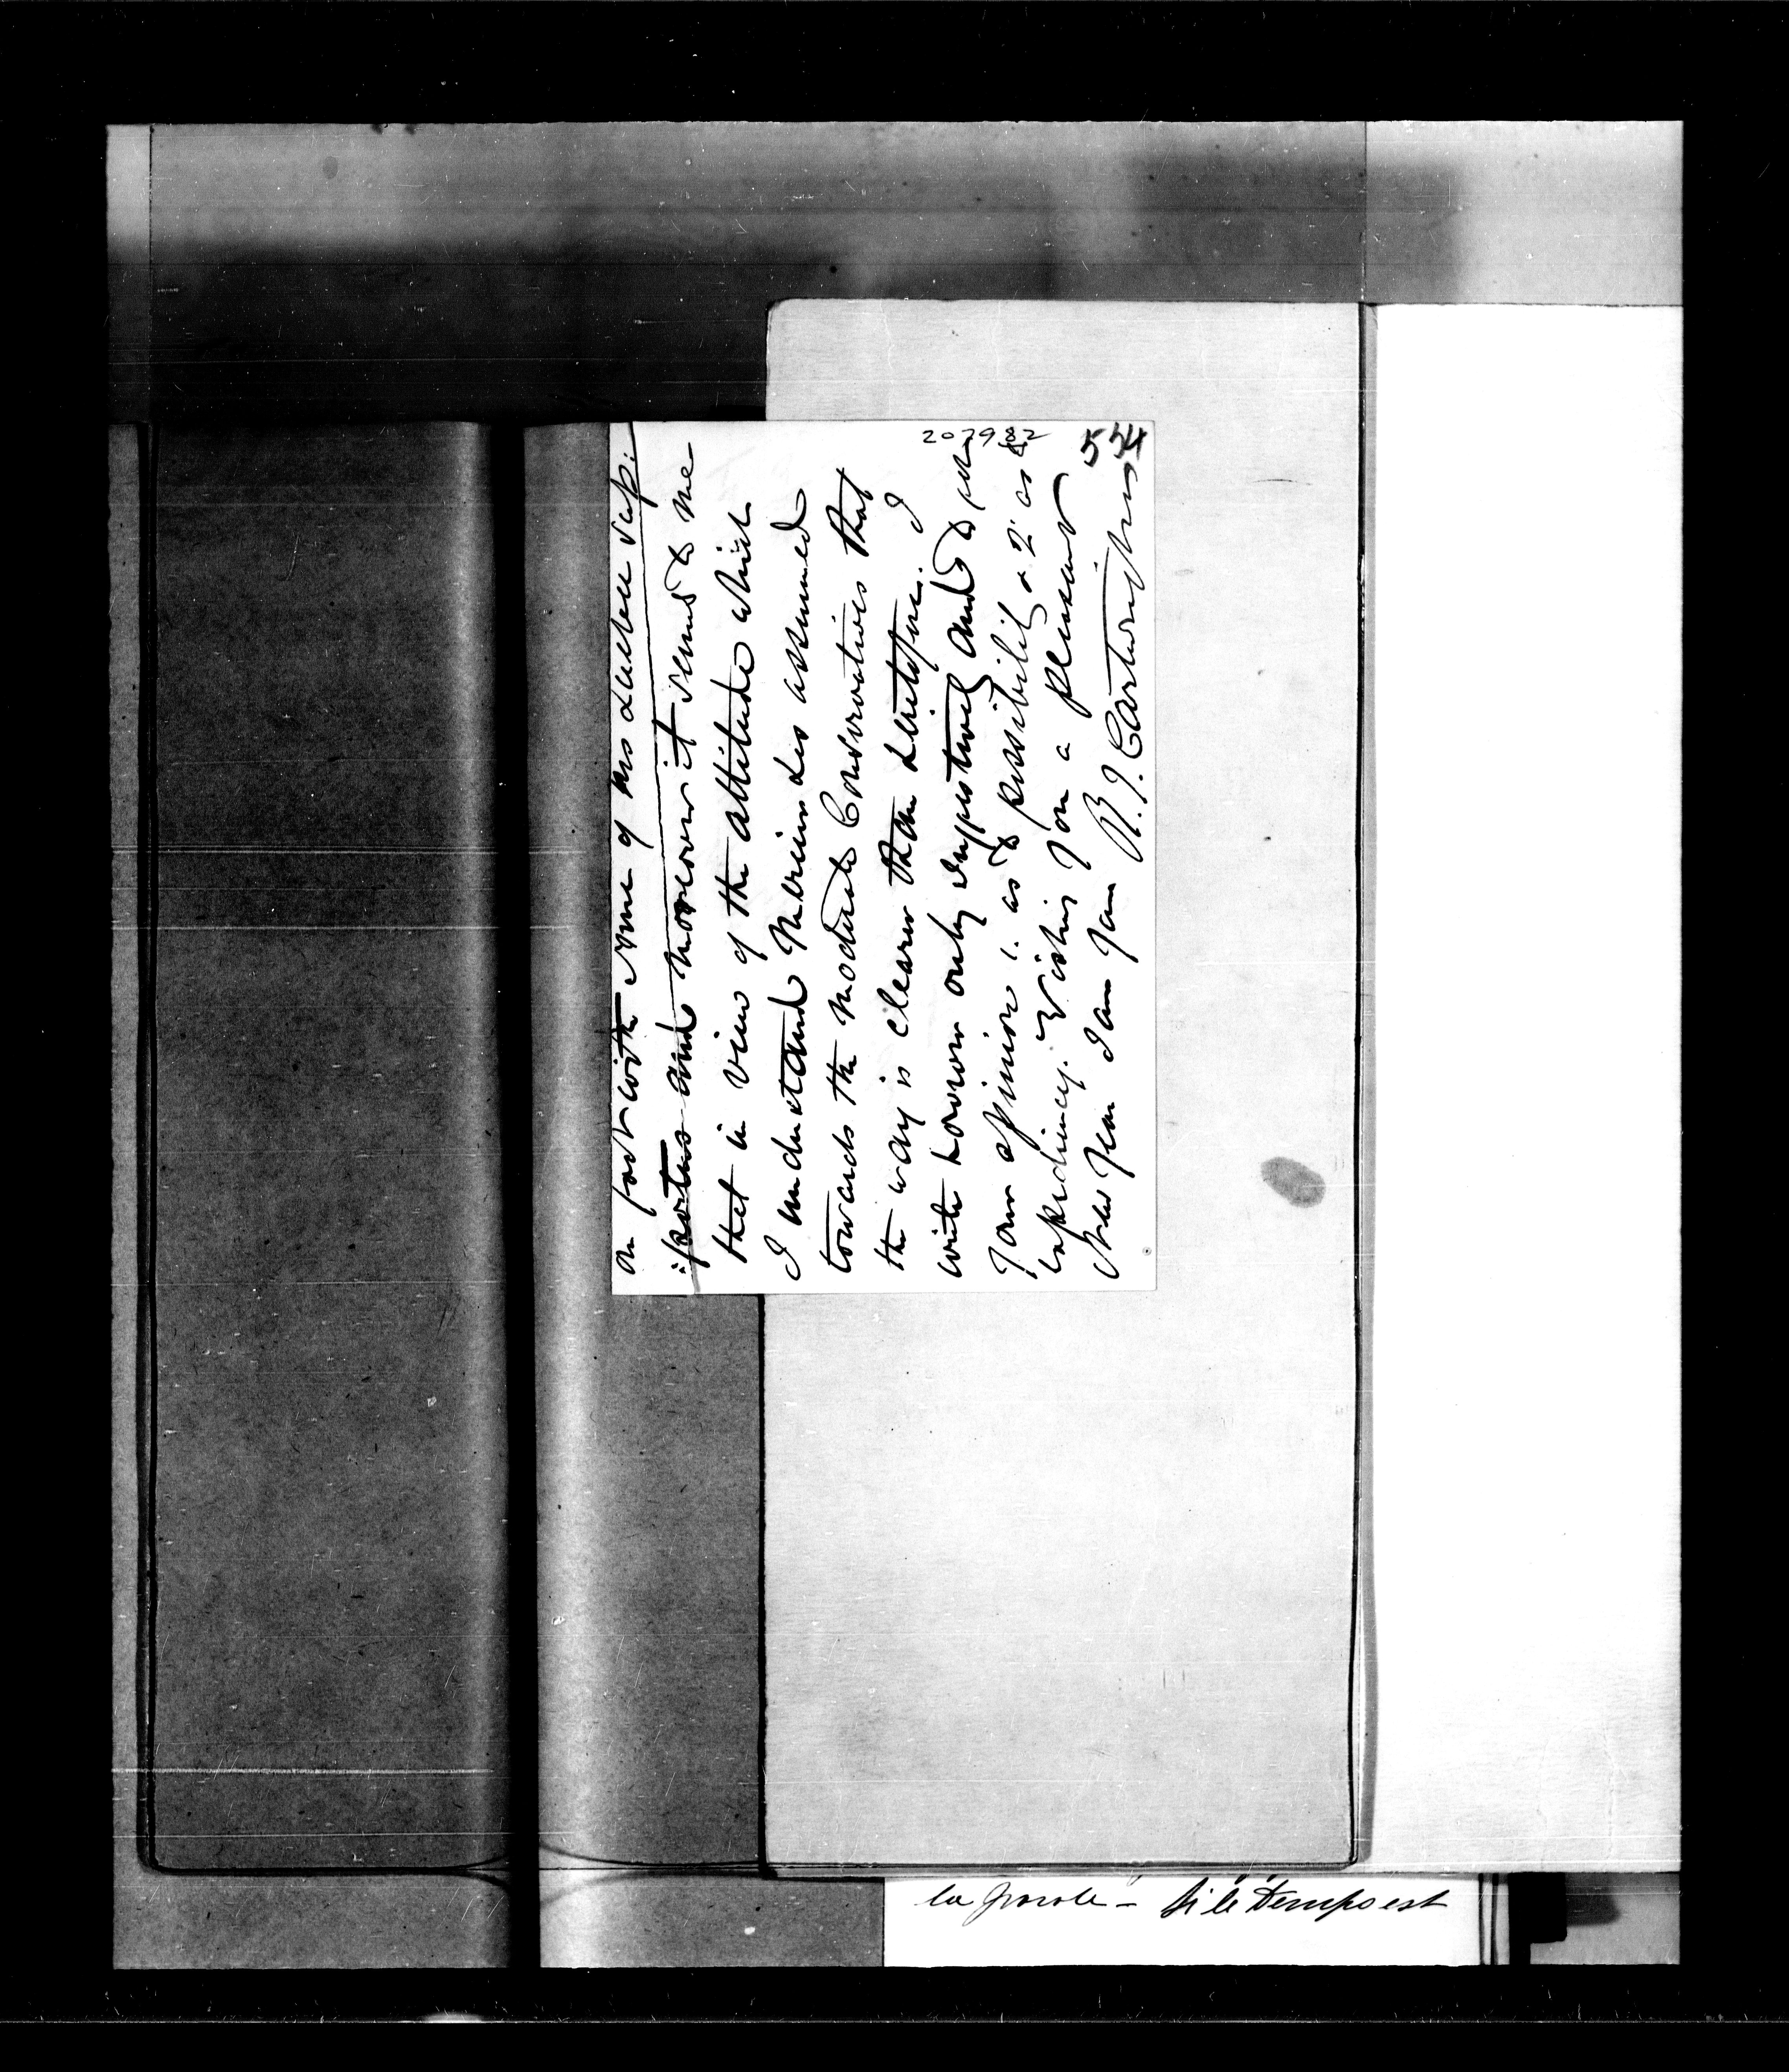 207982
554
on foot with some of his Quebec sup:
:porters and moreover it seems to me
that in view of the attitude which
I understand Mercier has assumed
towards the moderate Conservatives that
the way is clearer than heretofore. I
write however only suggestively and to get
Your opinion 1. as to possibility & 2. as to
expediency. Wishing You a pleasant
New Year I am Yours
R. J. Cartwright
la parole – Si le temps est